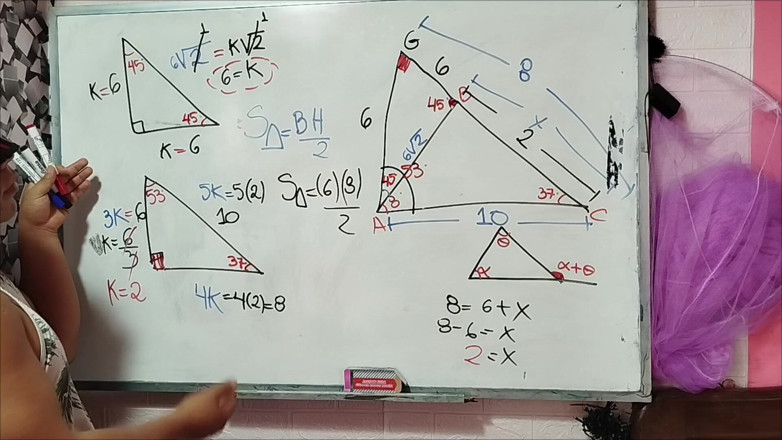 6√2 = K√2
6 = K
45
K = 6
45
K = 6
S△ = BH/2
G
8
6
45 B
x
6
6√2
2
53
45
8
37
A
10
C
53
3K = 6
5K = 5(2)
10
S△ = (6)(8)/2
K = 6/3
37
K = 2
4K = 4(2) = 8
θ
α
α+θ
8 = 6 + X
8 - 6 = X
2 = X